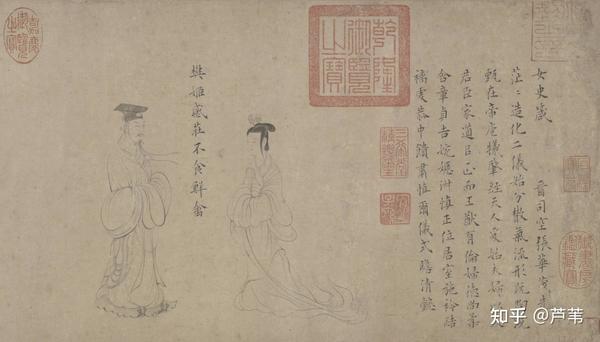 女史箴 晉司空張華
茫〻造化二儀始分散氣流形既陶既
甄在帝庖犧肇經天人爰始夫婦以
君臣家道以正而王猷有倫婦德尚柔
含章貞吉婉嫕淑慎正位居室施衿結
褵虔恭中饋肅慎爾儀式瞻清懿
樊姬感莊不食鮮禽
乾隆御覽之寶
三希堂精鑑璽
宜子孫
嘉慶御覽之寶
知乎 @芦苇